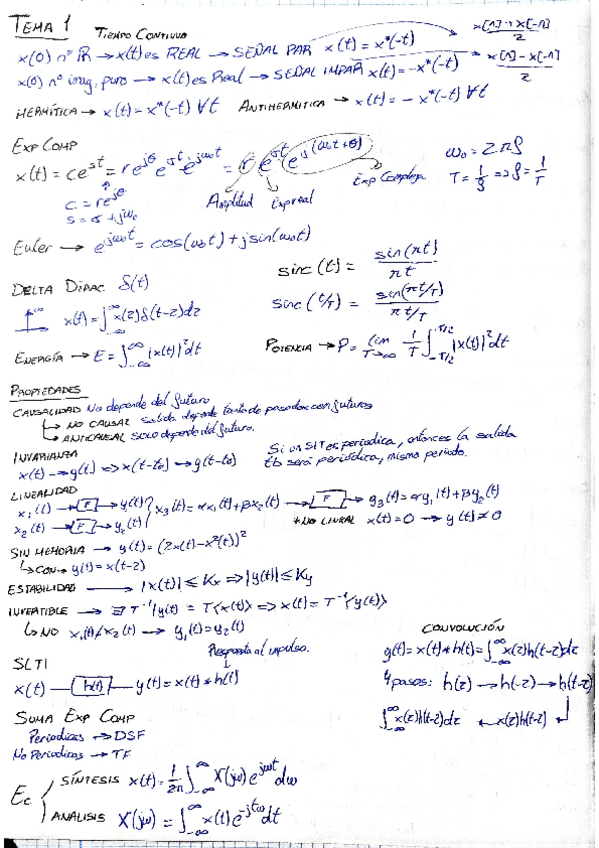 TEMA 1 TIEMPO CONTINUO
x(0) nº ℝ → x(t) es REAL → SEÑAL PAR x(t) = x*(-t) x[n]+x[-n] / 2
x(0) nº imag. puro → x(t) es Real → SEÑAL IMPAR x(t) = -x*(-t) x[n]-x[-n] / 2
HERMÍTICA → x(t) = x*(-t) ∀t ANTIHERMITICA → x(t) = - x*(-t) ∀t
EXP COMP
x(t) = ce^{st} = re^{jθ} e^{σt} e^{jω₀t} = r e^{σt} e^{j(ω₀t+θ)} Exp Compleja
ω₀ = 2πf
T = 1/f => f = 1/T
c = re^{jθ}
s = σ + jω₀
Amplitud Exp real
Euler → e^{jω₀t} = cos(ω₀t) + j sin(ω₀t)
sinc(t) = sin(πt) / πt
DELTA DIRAC δ(t)
sinc(t/T) = sen(πt/T) / πt/T
x(t) = ∫_{-∞}^{∞} x(z) δ(t-z)dz
ENERGÍA → E = ∫_{-∞}^{∞} |x(t)|² dt POTENCIA → P = lim_{T→∞} 1/T ∫_{-T/2}^{T/2} |x(t)|² dt
PROPIEDADES
CAUSALIDAD No depende del futuro
↳ NO CAUSAL salida depende tanto de pasados con futuros
↳ ANTICAUSAL SOLO depende del futuro.
INVARIANZA
x(t) → y(t) => x(t-t₀) → y(t-t₀)
Si un SLT es periodica, entonces la salida
tb será periódica, mismo periodo.
LINEALIDAD
x₁(t) → F → y₁(t)
x₂(t) → F → y₂(t)
x₃(t) = αx₁(t) + βx₂(t) → F → y₃(t) = αy₁(t) + βy₂(t)
* NO LINEAL x(t) = 0 → y(t) ≠ 0
SIN MEMORIA → y(t) = (2x(t) - x²(t))²
↳ CON → y(t) = x(t-2)
ESTABILIDAD → |x(t)| ≤ Kx => |y(t)| ≤ Ky
INVERTIBLE → ∃ T⁻¹ / y(t) = T{x(t)} => x(t) = T⁻¹{y(t)}
↳ NO x₁(t) ≠ x₂(t) → y₁(t) = y₂(t)
SLTI
Respuesta al impulso.
x(t) → h(t) → y(t) = x(t) * h(t)
CONVOLUCIÓN
y(t) = x(t) * h(t) = ∫_{-∞}^{∞} x(z)h(t-z)dz
4 pasos: h(z) → h(-z) → h(t-z)
∫_{-∞}^{∞} x(z)h(t-z)dz ← x(z)h(t-z)
SUMA EXP COMP
Periodicas → DSF
No Periodicas → TF
Ec
SÍNTESIS x(t) = 1/2π ∫_{-∞}^{∞} X(jω) e^{jωt} dω
ANÁLISIS X(jω) = ∫_{-∞}^{∞} x(t) e^{-jtω} dt